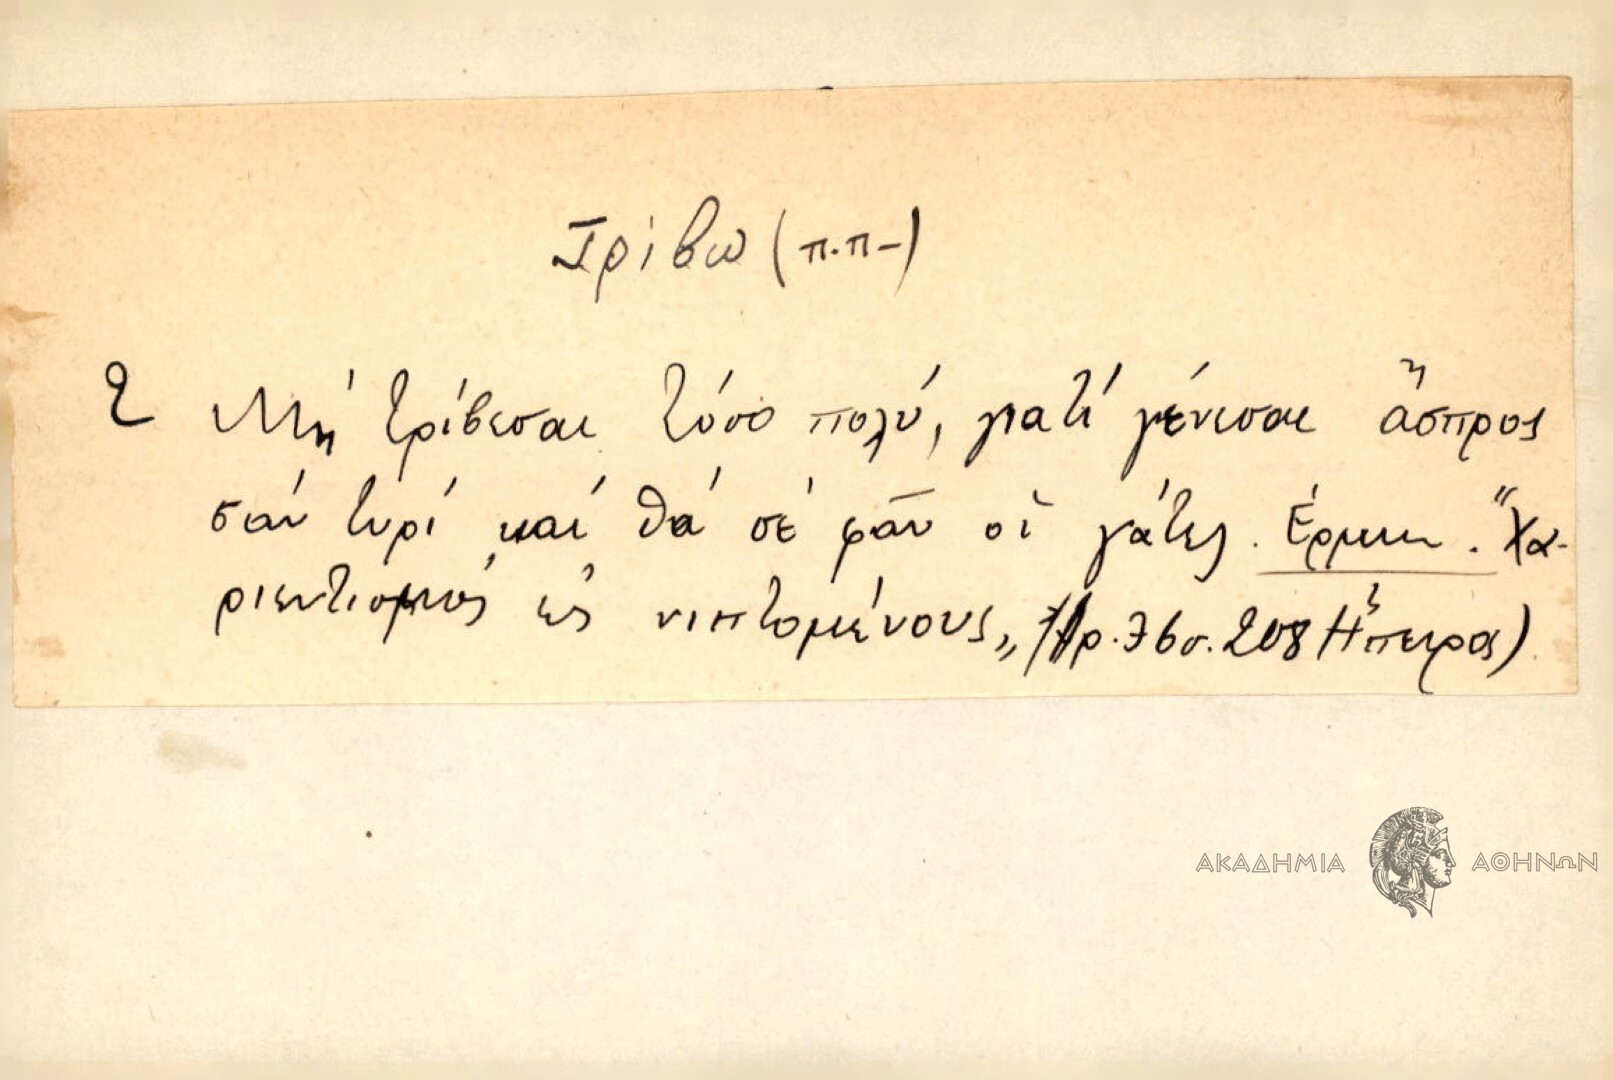 Τρίβω (π.π-)
2 Μή τρίβεσαι τόσο πολύ, γιατί γένεσαι ἄσπρος
σάν τυρί καί θά σέ φᾶν οἱ γάτες. Ἑρμην. "Χα-
ριεντισμός εἰς νιπτομένους„ (Ἀρ. 76 σ. 208 Ἤπειρος)
ΑΚΑΔΗΜΙΑ ΑΘΗΝΩΝ